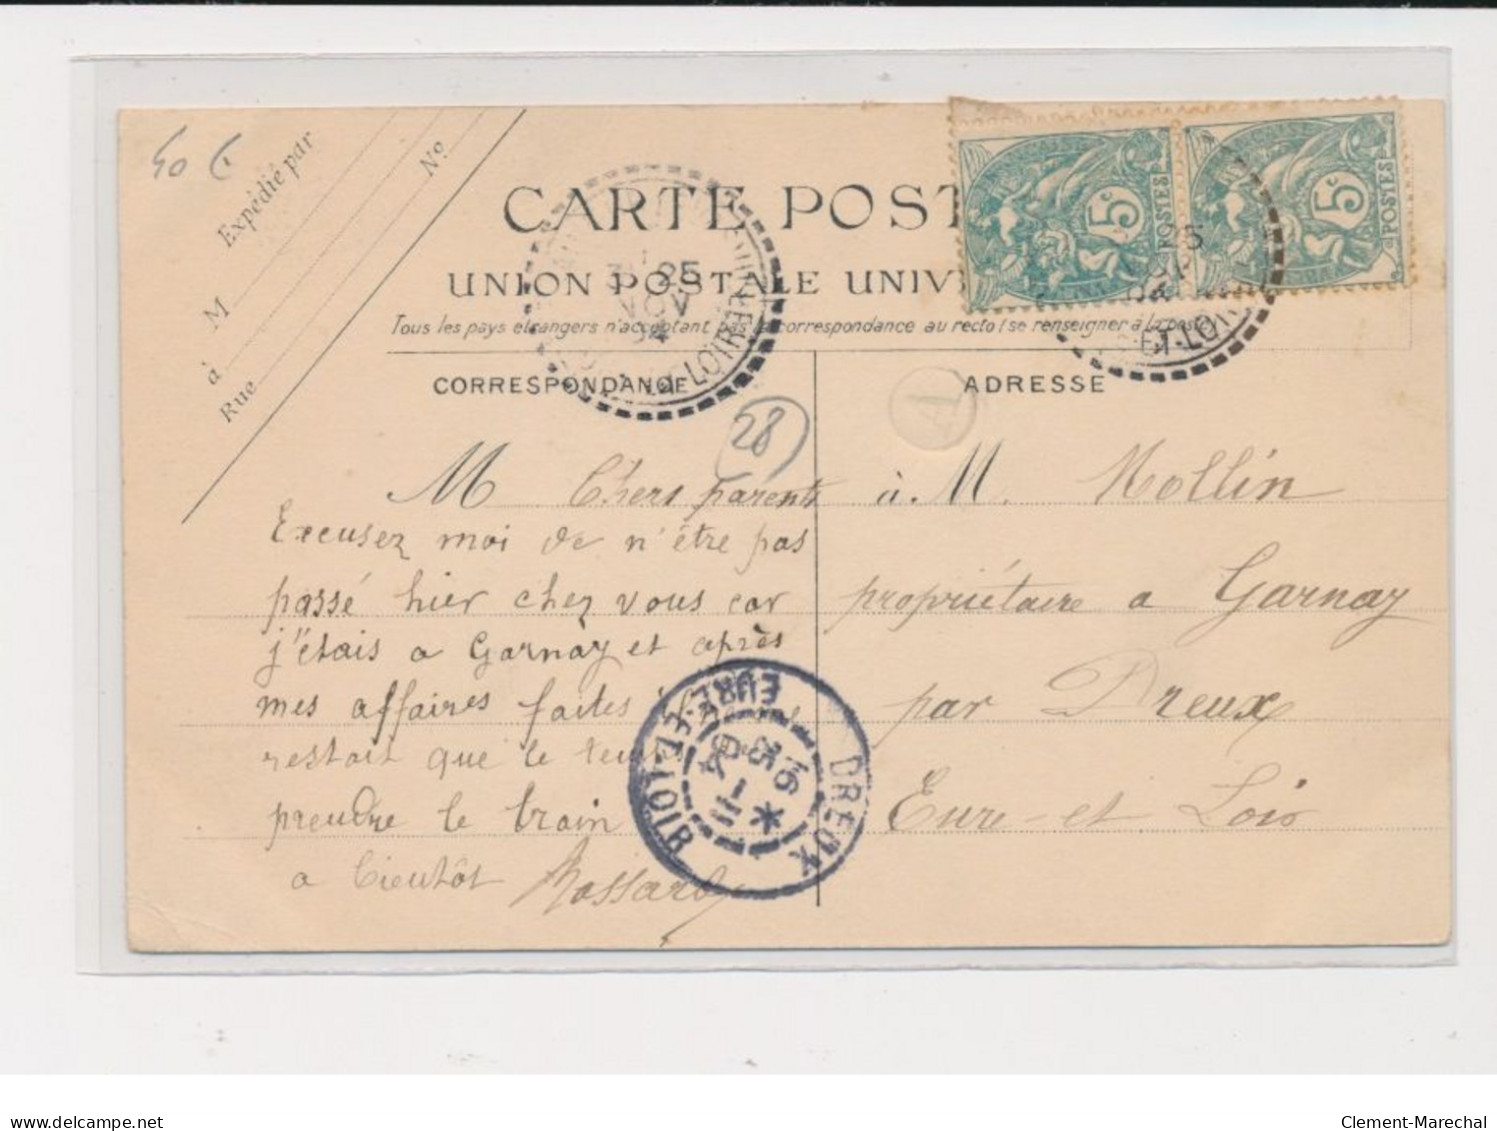 50 €
Expédié par
Nº
M
à
Rue
CARTE POST
UNION POSTALE UNIV
Tous les pays étrangers n'acceptant pas la correspondance au recto (se renseigner à la poste)
5c
POSTES
5c
POSTES
25
NOV
LOIR
ET-LOIR
CORRESPONDANCE
ADRESSE
A
28
M Chers parents
Excusez moi de n'être pas
passé hier chez vous car
j'étais a Garnay et après
mes affaires faites
restait que le
prendre le train
a bientôt
à M. Mollin
propriétaire a Garnay
par Dreux
Eure-et Loir
DREUX
EURE-ET-LOIR
16
25
-11
04
delcampe.net
Clement-Marechal